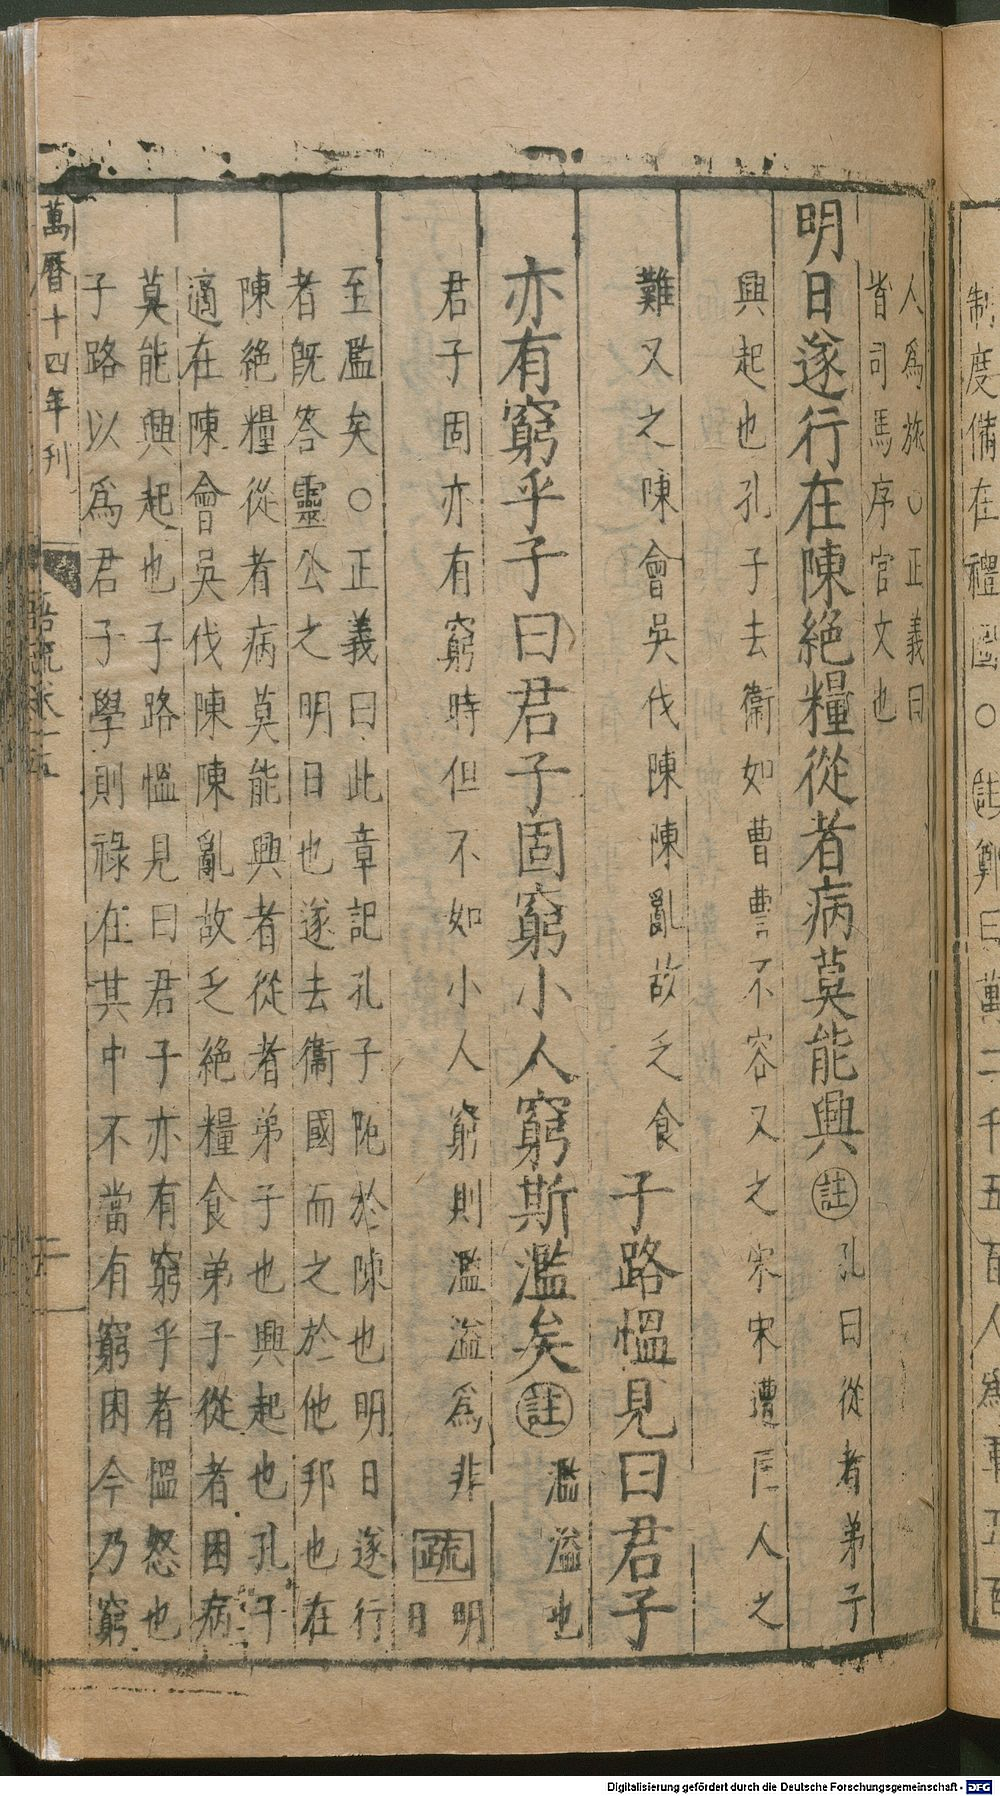 人爲旅○正義曰
皆司馬序官文也
明日遂行在陳絕糧從者病莫能興註孔曰從者弟子
興起也孔子去衞如曹曹不容又之宋宋遭匡人之
難又之陳會吳伐陳陳亂故乏食
子路慍見曰君子
亦有窮乎子曰君子固窮小人窮斯濫矣註濫溢也
君子固亦有窮時但不如小人窮則濫溢爲非
疏明
日
至濫矣○正義曰此章記孔子阨於陳也明日遂行
者既答靈公之明日也遂去衞國而之於他邦也在
陳絕糧從者病莫能興者從者弟子也興起也孔子
適在陳會吳伐陳陳亂故乏絕糧食弟子從者困病
莫能興起也子路慍見曰君子亦有窮乎者慍怒也
子路以爲君子學則祿在其中不當有窮困今乃窮
萬曆十四年刊
語疏卷十五
二
制度備在禮○註鄭曰萬二千五百人爲軍五百
Digitalisierung gefördert durch die Deutsche Forschungsgemeinschaft - DFG